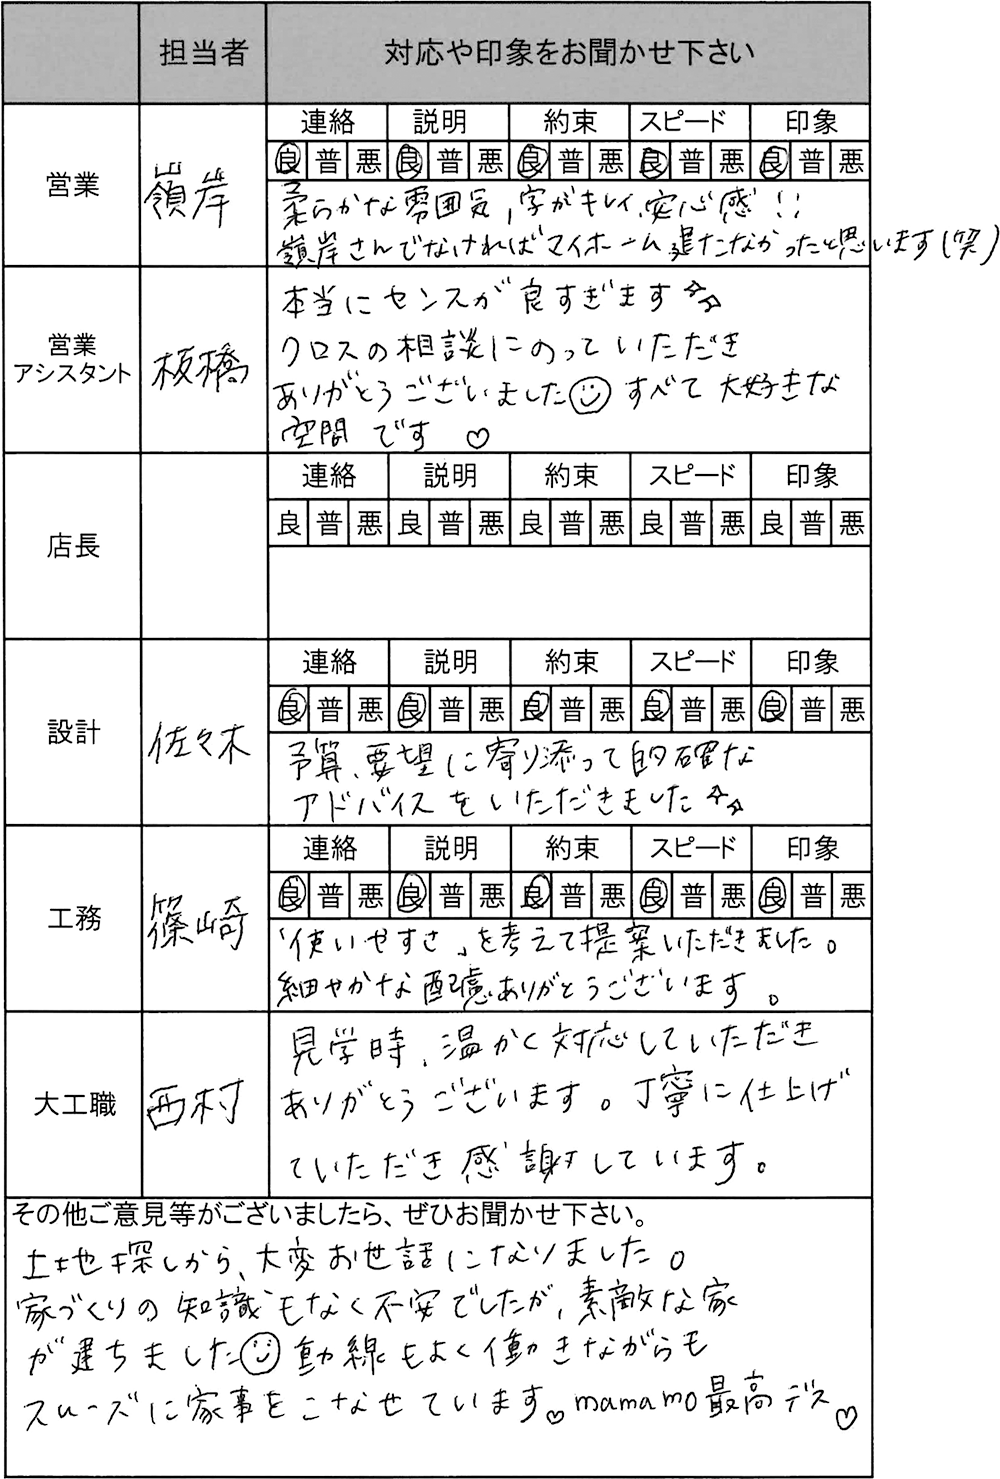 担当者 対応や印象をお聞かせ下さい
連絡 説明 約束 スピード 印象
営業 嶺岸 良 普 悪 良 普 悪 良 普 悪 良 普 悪 良 普 悪
柔らかな雰囲気,字がキレイ、安心感!!
嶺岸さんでなければマイホーム進たなかったと思います(笑)
営業
アシスタント
板橋
本当にセンスが良すぎます☆☆
クロスの相談にのっていただき
ありがとうございました☺すべて大好きな
空間です♡
連絡 説明 約束 スピード 印象
店長 良 普 悪 良 普 悪 良 普 悪 良 普 悪 良 普 悪
連絡 説明 約束 スピード 印象
設計 佐々木 良 普 悪 良 普 悪 良 普 悪 良 普 悪 良 普 悪
予算、要望に寄り添って的確な
アドバイスをいただきました☆☆
連絡 説明 約束 スピード 印象
工務 篠崎 良 普 悪 良 普 悪 良 普 悪 良 普 悪 良 普 悪
「使いやすさ」を考えて提案いただきました。
細やかな配慮ありがとうございます。
大工職 西村
見学時、温かく対応していただき
ありがとうございます。丁寧に仕上げ
ていただき感謝しています。
その他ご意見等がございましたら、ぜひお聞かせ下さい。
土地探しから、大変お世話になりました。
家づくりの知識もなく不安でしたが,素敵な家
が建ちました☺動線もよく働きながらも
スムーズに家事をこなせています♡mamamo最高デス♡